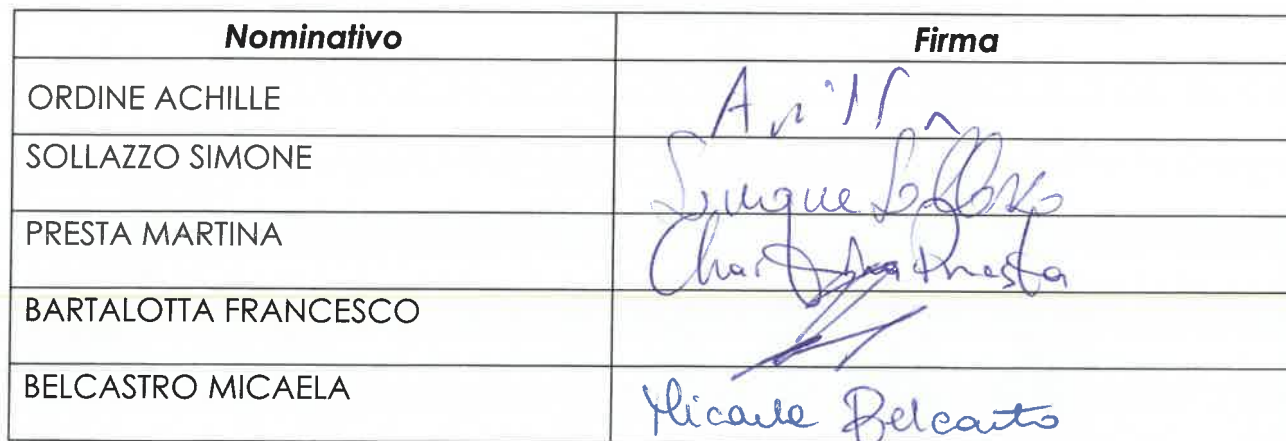 Nominativo Firma
ORDINE ACHILLE
SOLLAZZO SIMONE
PRESTA MARTINA Presta
BARTALOTTA FRANCESCO
BELCASTRO MICAELA Micaela Belcastro